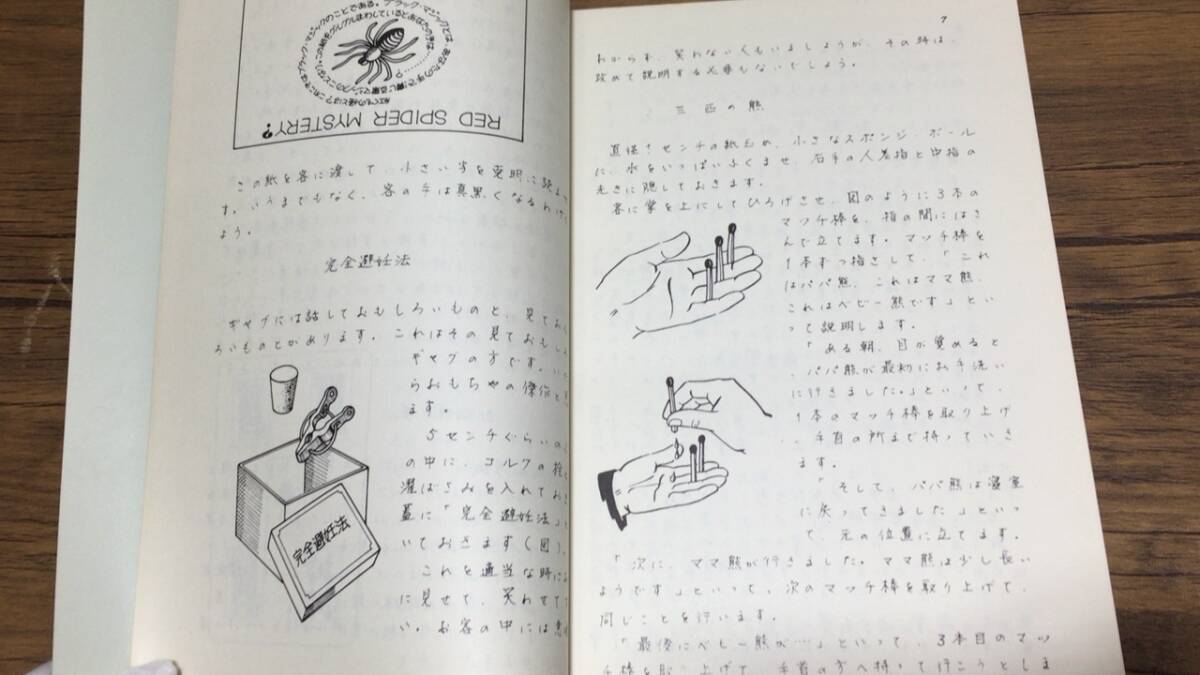 RED SPIDER MYSTERY?
この紙を客に渡して、小さい字を克明に読ま
す。いうまでもなく、客の手は真黒くなるわけ
よう。
完全避妊法
ギャグには話しておもしろいものと、見ておも
ろいものとがあります。これはその見ておもしろ
ギャグの方です。
らおもちゃの傑作と
ます。
5センチぐらいの
の中に、コルクの栓
濯ばさみを入れておき
蓋に「完全避妊法」と
いておきます(図)。
これを適当な時に
に見せて、笑わせて
い。お客の中には意
完全避妊法
7
わからず、笑わない人もいましょうが、その時は、
改めて説明する必要もないでしょう。
三匹の熊
直径1センチの紙玉か、小さなスポンジ・ボール
に、水をいっぱいふくませ、右手の人差指と中指の
先きに隠しておきます。
客に掌を上にしてひろげさせ、図のように3本の
マッチ棒を、指の間にはさ
んで立てます。マッチ棒を
1本ずつ指さして、「これ
はパパ熊、これはママ熊、
これはベビー熊です」とい
って説明します。
「ある朝、目が覚めると
、パパ熊が最初にお手洗い
に行きました。」といって、
1本のマッチ棒を取り上げ
、手首の所まで持っていき
ます。
「そして、パパ熊は寝室
に戻ってきました」といっ
て、元の位置に立てます。
「次に、ママ熊が行きました。ママ熊は少し長い
ようです」といって、次のマッチ棒を取り上げて、
同じことを行います。
「最後にベビー熊が…」といって、3本目のマッ
チ棒を取り上げて、手首の方へ持って行こうとしま